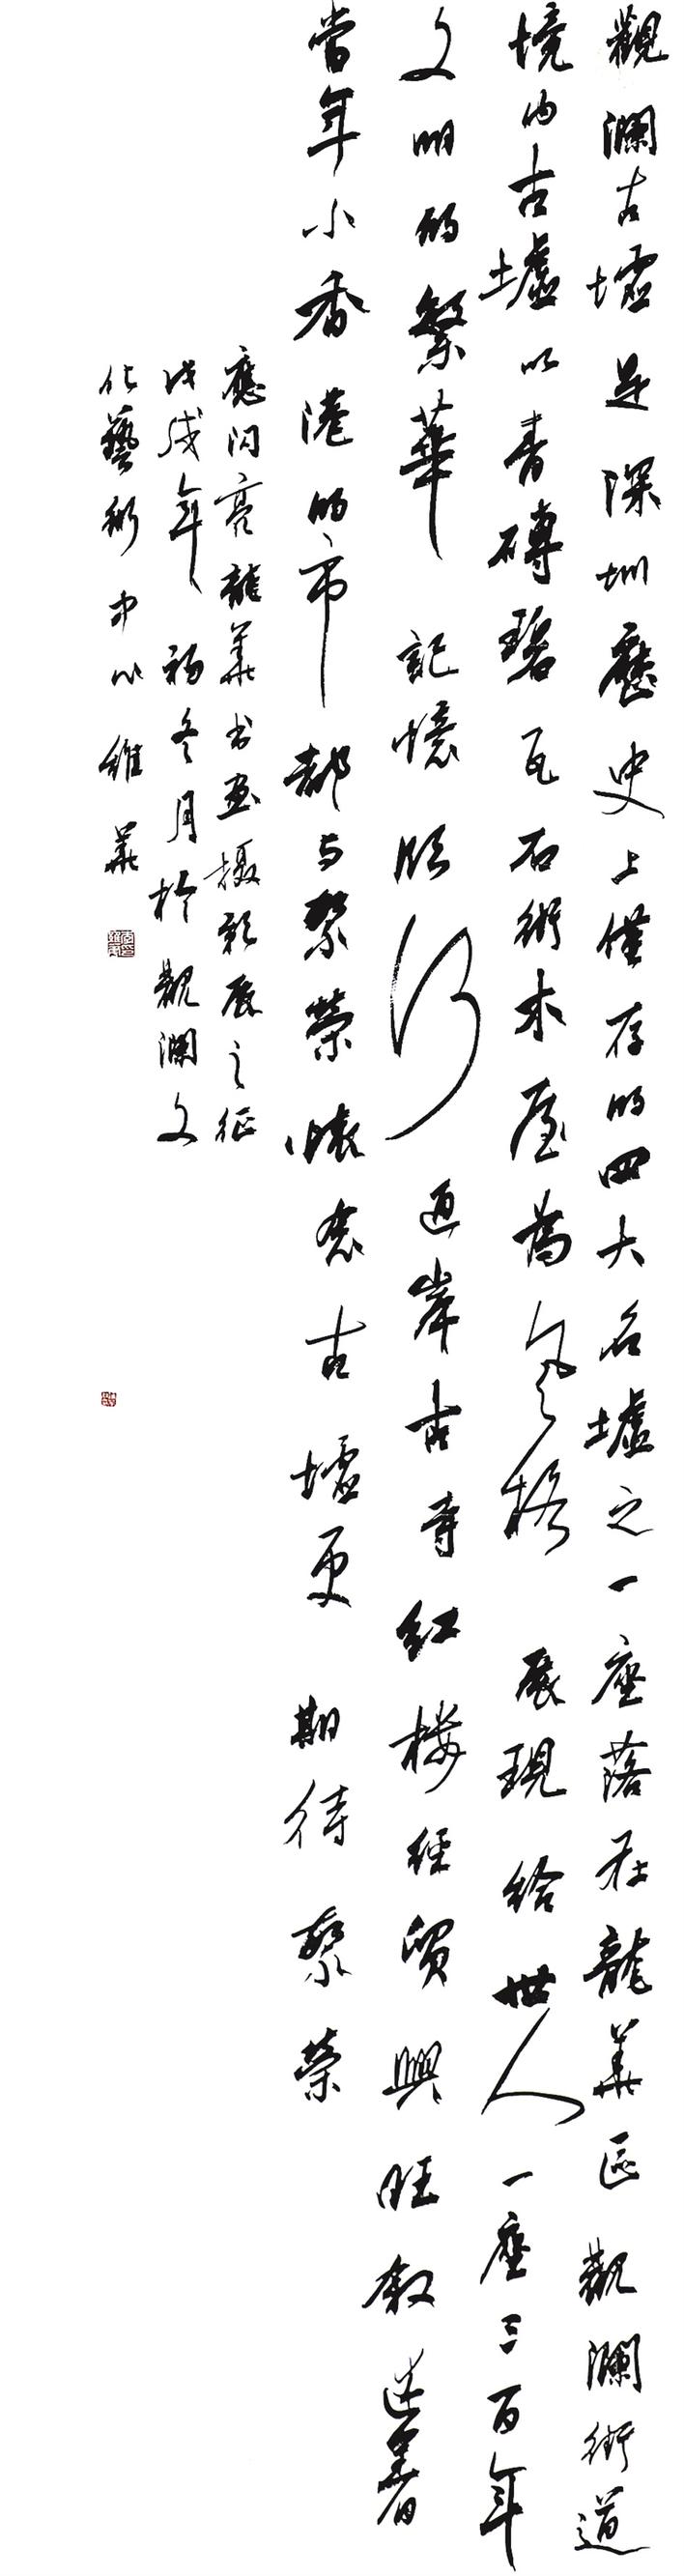 觀瀾古墟是深圳歷史上僅存的四大名墟之一座落在龍華區觀瀾街道
境内古墟以青磚碧瓦石街木屋為風格展現給世人一座三百年
文明的繁華記憶河岸古寺紅樓經貿興旺叙述着
當年小香港的市都与繁榮懷念古墟更期待繁榮
應閃亮龍華书画摄影展之征
戊戌年初冬月於觀瀾文
化藝術中心維華